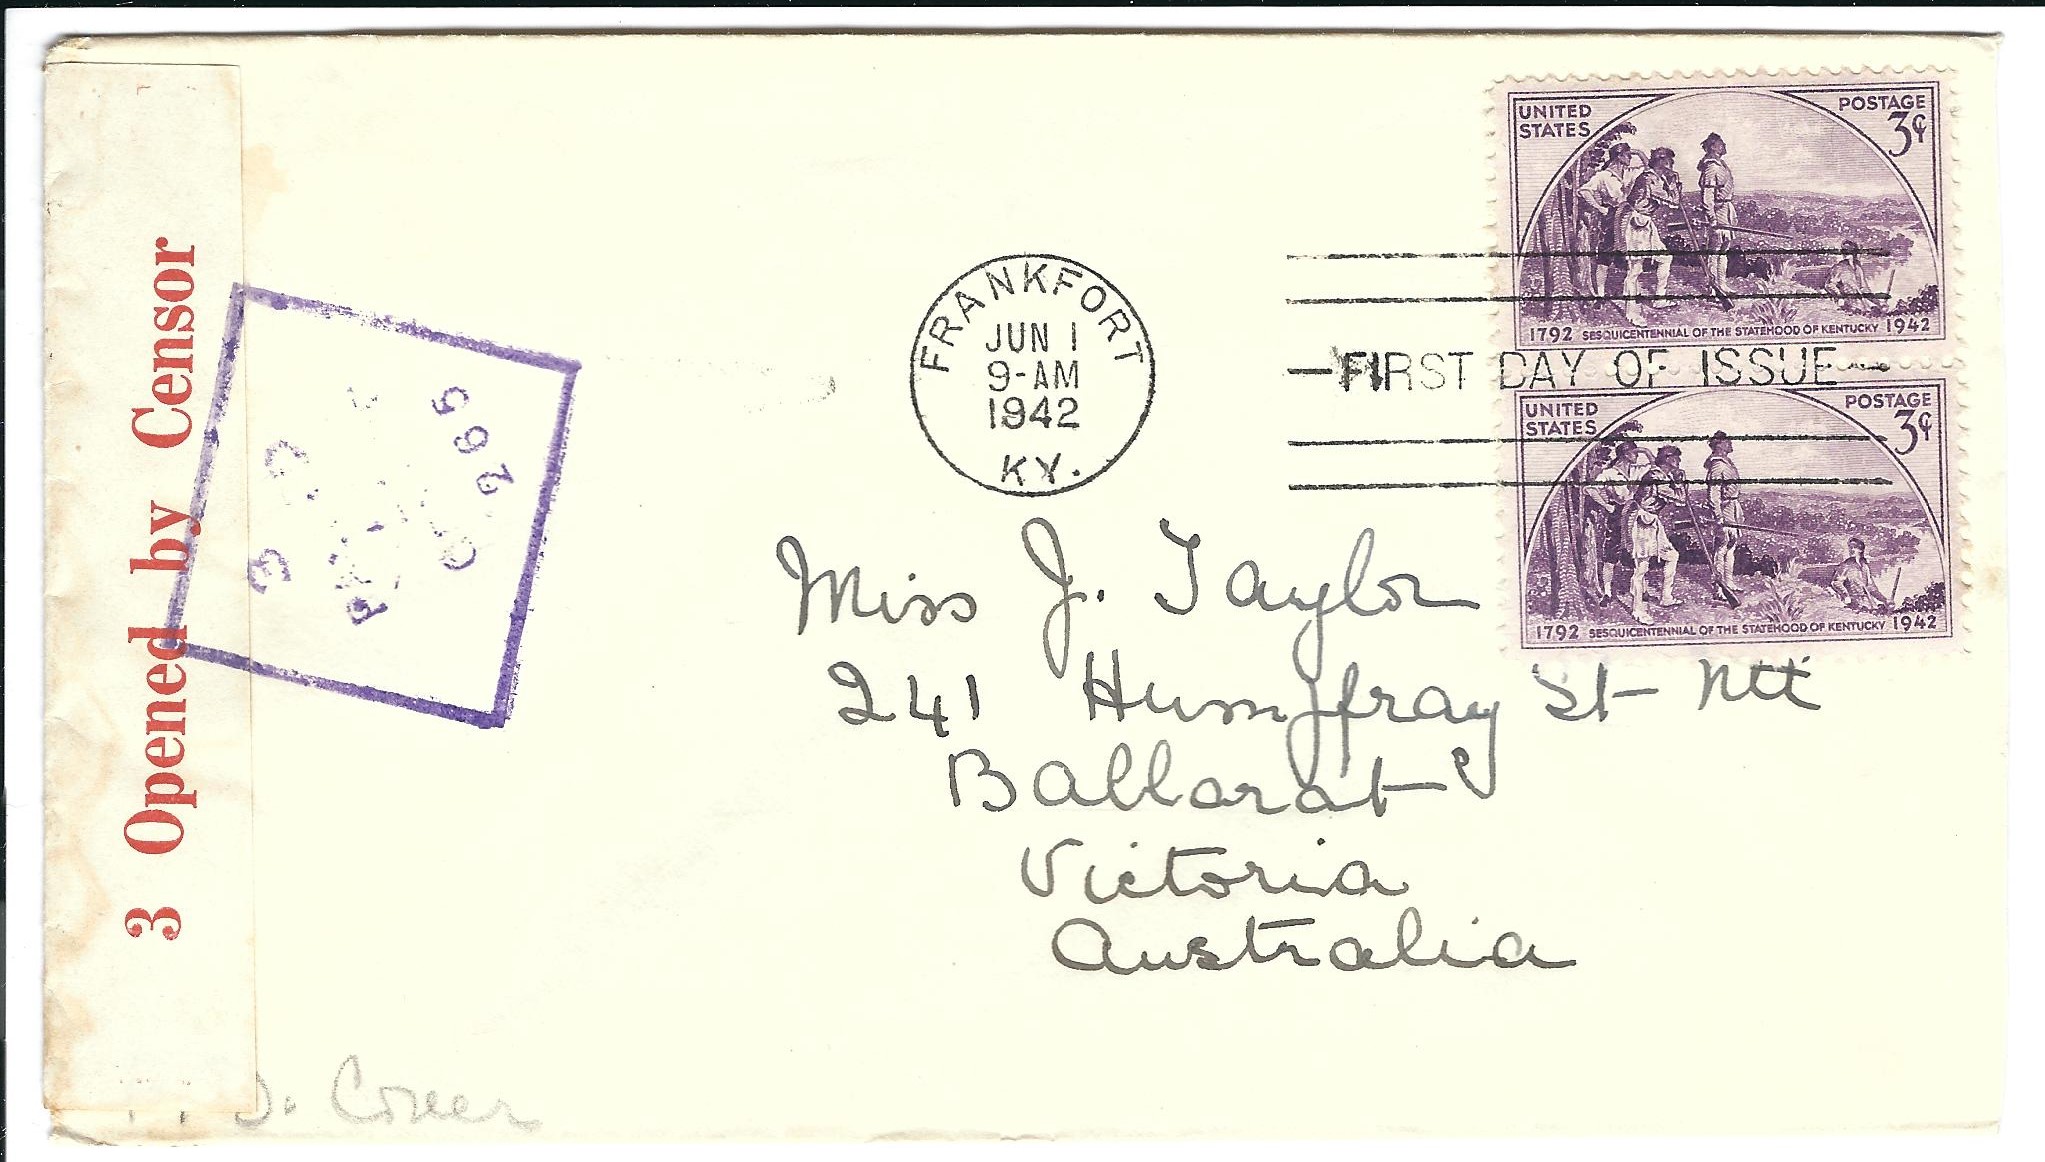 3 Opened by Censor
FRANKFORT
JUN 1
9-AM
1942
KY.
FIRST DAY OF ISSUE
UNITED STATES POSTAGE 3¢
1792 SESQUICENTENNIAL OF THE STATEHOOD OF KENTUCKY 1942
UNITED STATES POSTAGE 3¢
1792 SESQUICENTENNIAL OF THE STATEHOOD OF KENTUCKY 1942
Miss J. Taylor
241 Humffray St Nth
Ballarat
Victoria
Australia
D. Cover